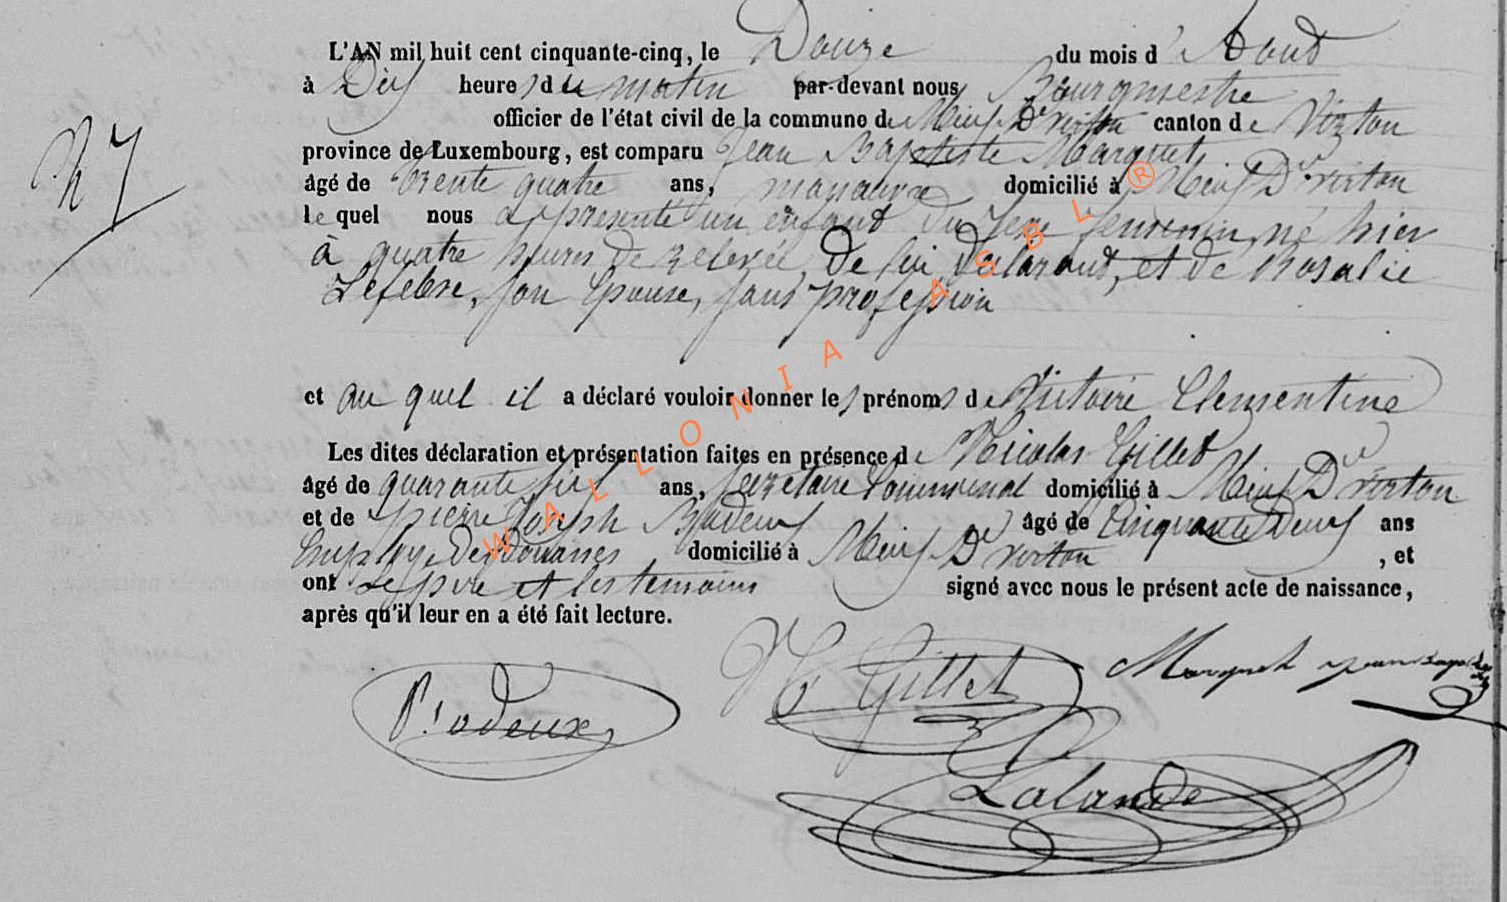 L'AN mil huit cent cinquante-cinq, le Douze du mois d'Aout
à Dix heures du matin par-devant nous Bourgmestre
officier de l'état civil de la commune de Meix Dt virton canton de Virton
province de Luxembourg, est comparu Jean Baptiste Marquet
âgé de trente quatre ans, manœuvre domicilié à Meix Dt virton
le quel nous a présenté un enfant du sexe feminin, né hier
à quatre heures de relevée, De lui Déclarant, et de Rosalie
Lefebre, son Epouse, sans profession
et au quel il a déclaré vouloir donner les prénoms de Victoire Clementine
Les dites déclaration et présentation faites en présence de Nicolas Gillet
âgé de quarante six ans, secretaire Communal domicilié à Meix Dt virton
et de pierre Joseph Badeux âgé de Cinquante Deux ans
Employé Des Douanes domicilié à Meix Dt virton, et
ont Le père et les temoins signé avec nous le présent acte de naissance,
après qu'il leur en a été fait lecture.
Gillet Marquet jean bap
Lalande
WALLONIA ASBL ®